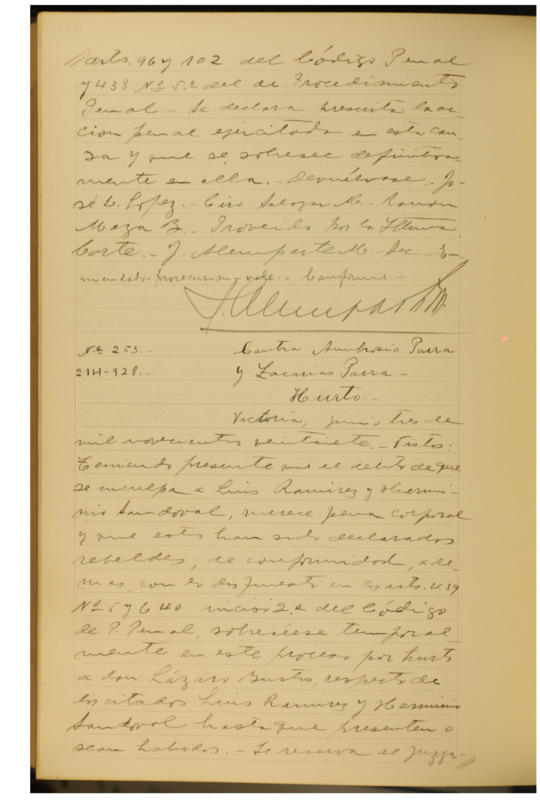 arts. 96 y 102 del Código Penal
y 438 Nº 5.º del de Procedimiento
Penal.- Se declara prescrita la ac-
cion penal ejercitada en esta cau-
sa y que se sobresee definitiva-
mente en ella.- Devuélvase.- Jo-
sé L. Lopez.- Ciro Salazar M.- Ramon
Meza B.- Proveido por la Iltma.
Corte.- J. Alemparte M. Sec.- En-
mendado- -vale.- Conforme.-
Nº 253.-
214-928.-
Contra Ambrosio Parra
y Zacarias Parra.-
Hurto.-
Victoria, junio tres de
mil novecientos veintisiete.- Vistos:
Teniendo presente que el delito de que
se inculpa a Luis Ramirez y Hermi-
nio Sandoval, merece pena corporal
y que estos han sido declarados
rebeldes, de conformidad, ade-
mas, con lo dispuesto en los arts. 439
Nº 5 y 640 inciso 2.º del Código
de P. Penal, sobreséese temporal-
mente en este proceso por hurto
a don Lázaro Bustos, respecto de
los citados Luis Ramirez y Herminio
Sandoval hasta que presenten o
sean habidos.- Se reserva el juzga-